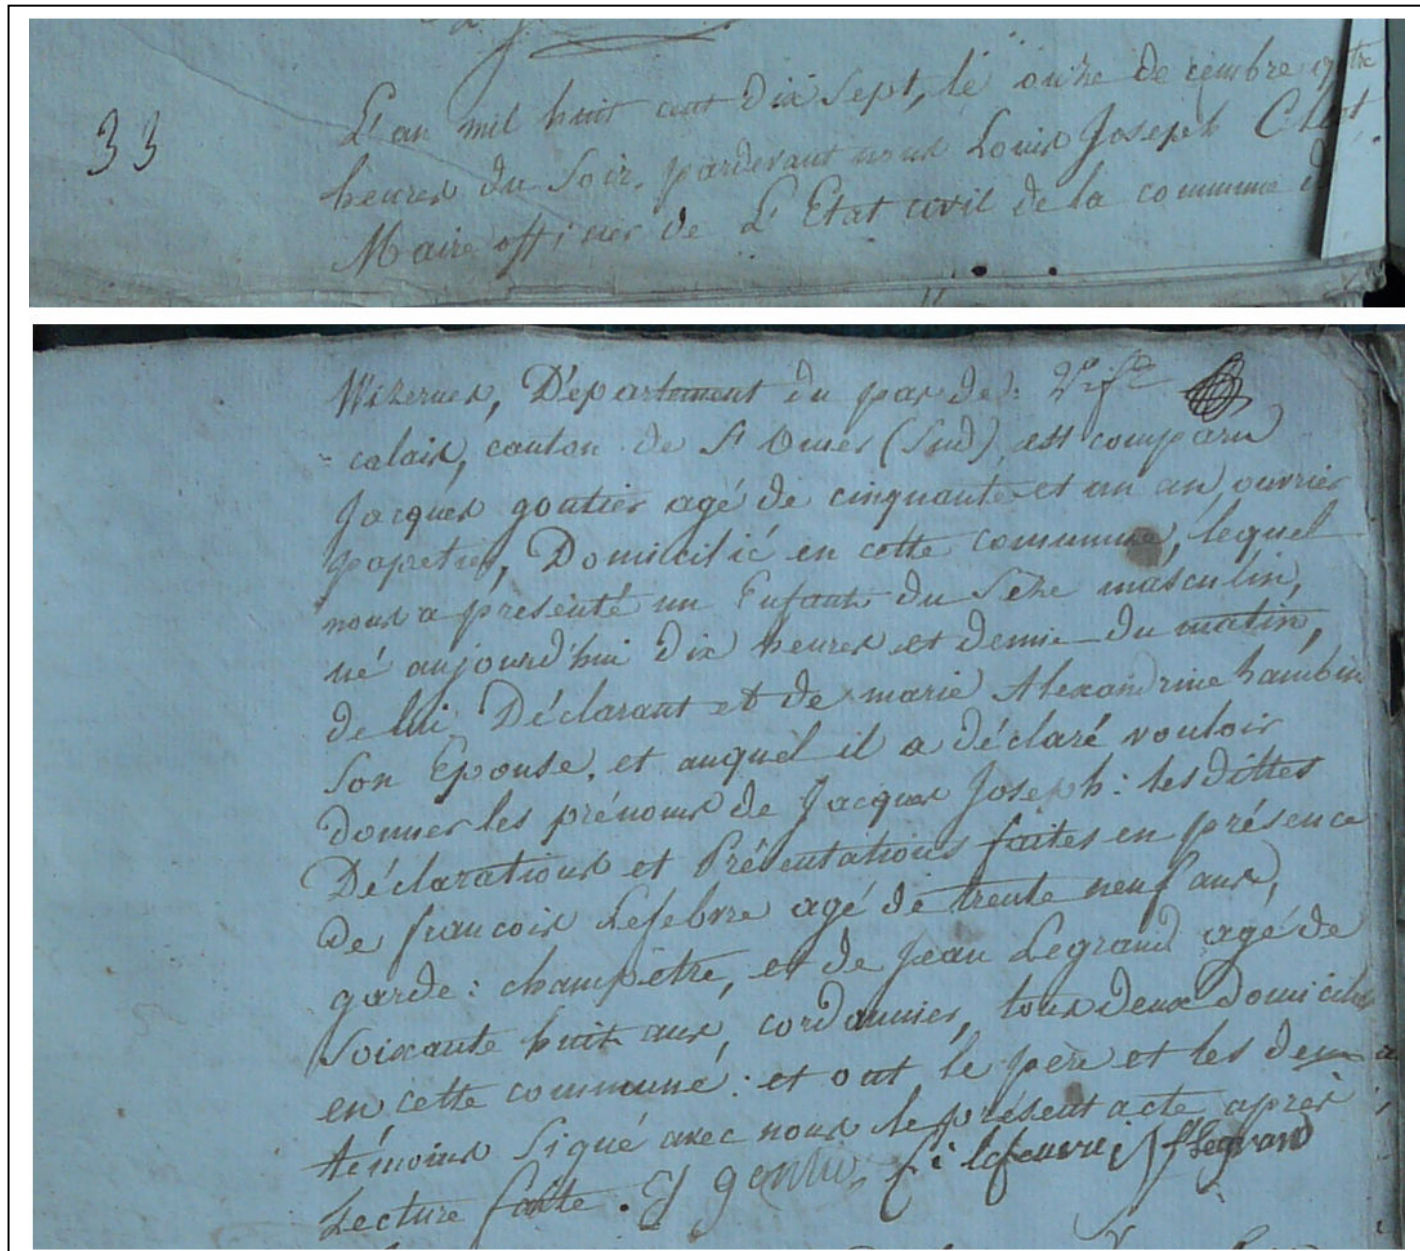 33
L'an mil huit cent dix sept, le onze decembre quatre
heures du Soir, pardevant nous Louis Joseph
Maire officier de L'Etat civil de la commune
Wizernes, Département du pas de:
calais, canton de St Omer (Sud) est comparu
Jacques goutier agé de cinquante et un an, ouvrier
papetier, Domicilié en cette commune, lequel
nous a présenté un Enfant du Sexe masculin,
né aujourd'hui dix heures et demie du matin,
de lui Déclarant et de marie Alexandrine hambin
Son Epouse, et auquel il a déclaré vouloir
donner les prénoms de Jacques Joseph: les dittes
Déclarations et Présentations faites en présence
de francois Lefebvre agé de trente neuf ans,
garde: champêtre, et de Jean Legrand agé de
Soixante huit ans, cordonnier, tous deux domiciliés
en cette commune: et ont le père et les deux
témoins Signé avec nous le présent acte après
Lecture faite. lefeuvre legrand